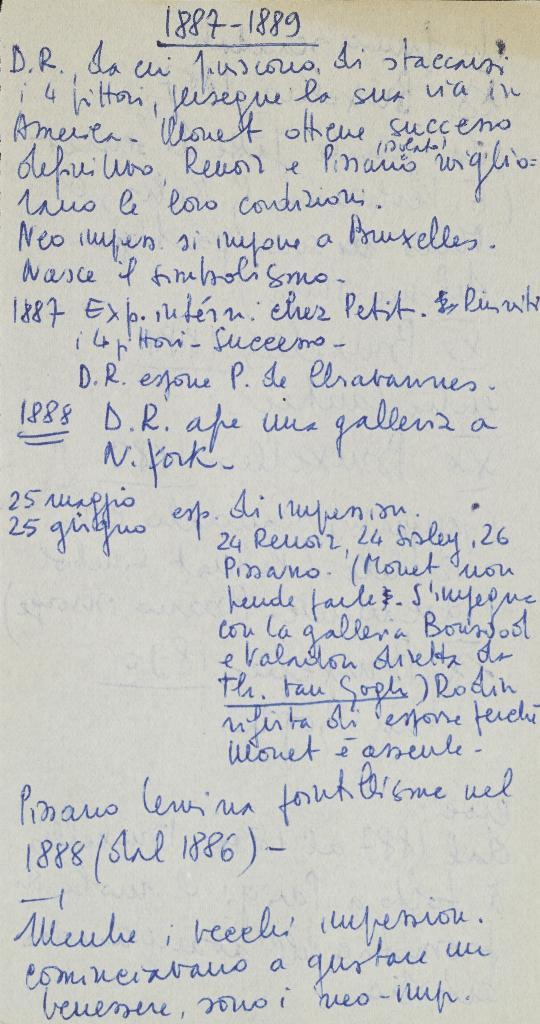 1887-1889
D.R., da cui finiscono di staccarsi
i 4 pittori, persegue la sua via in
America. Monet ottiene successo
definitivo, Renoir e Pissarro miglio=
rano le loro condizioni.
Neo impress. si impone a Bruxelles.
Nasce il simbolismo.
1887 Exp. intérn. chez Petit. Riuniti
i 4 pittori - Successo -
D.R. espone P. de Chavannes.
1888 D.R. apre una galleria a
N. York.
25 maggio
25 giugno esp. di impression.
24 Renoir, 24 Sisley, 26
Pissarro. (Monet non
prende parte. S'impegna
con la galleria Boussod
e Valadon diretta da
Th. van Gogh) Rodin
rifiuta di esporre perché
Monet è assente -
Pissarro termina pointillisme nel
1888 (dal 1886) -
Mentre i vecchi impression.
cominciavano a gustare un
benessere, sono i neo-imp.